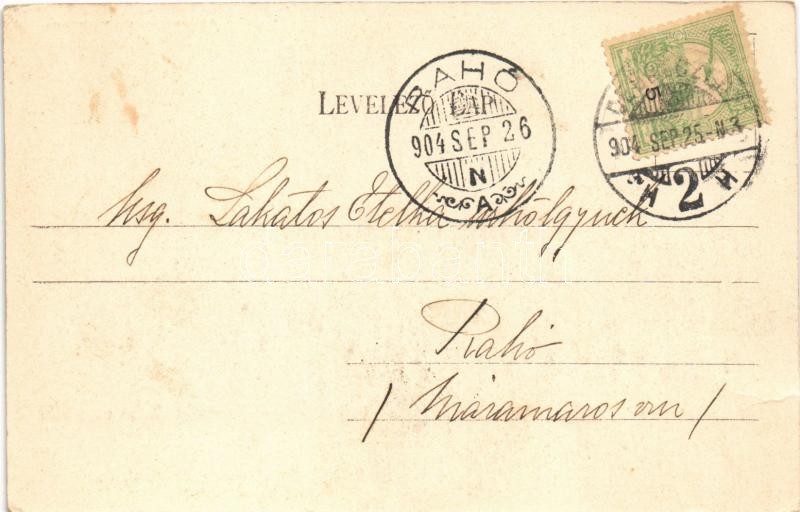 LEVELEZŐ LAP
RAHÓ
904 SEP 26
N
A
5
904 SEP 25 - N 3
2
Nsg. Lakatos Etelka úrhölgynek
Rahó
/ Máramaros vm /